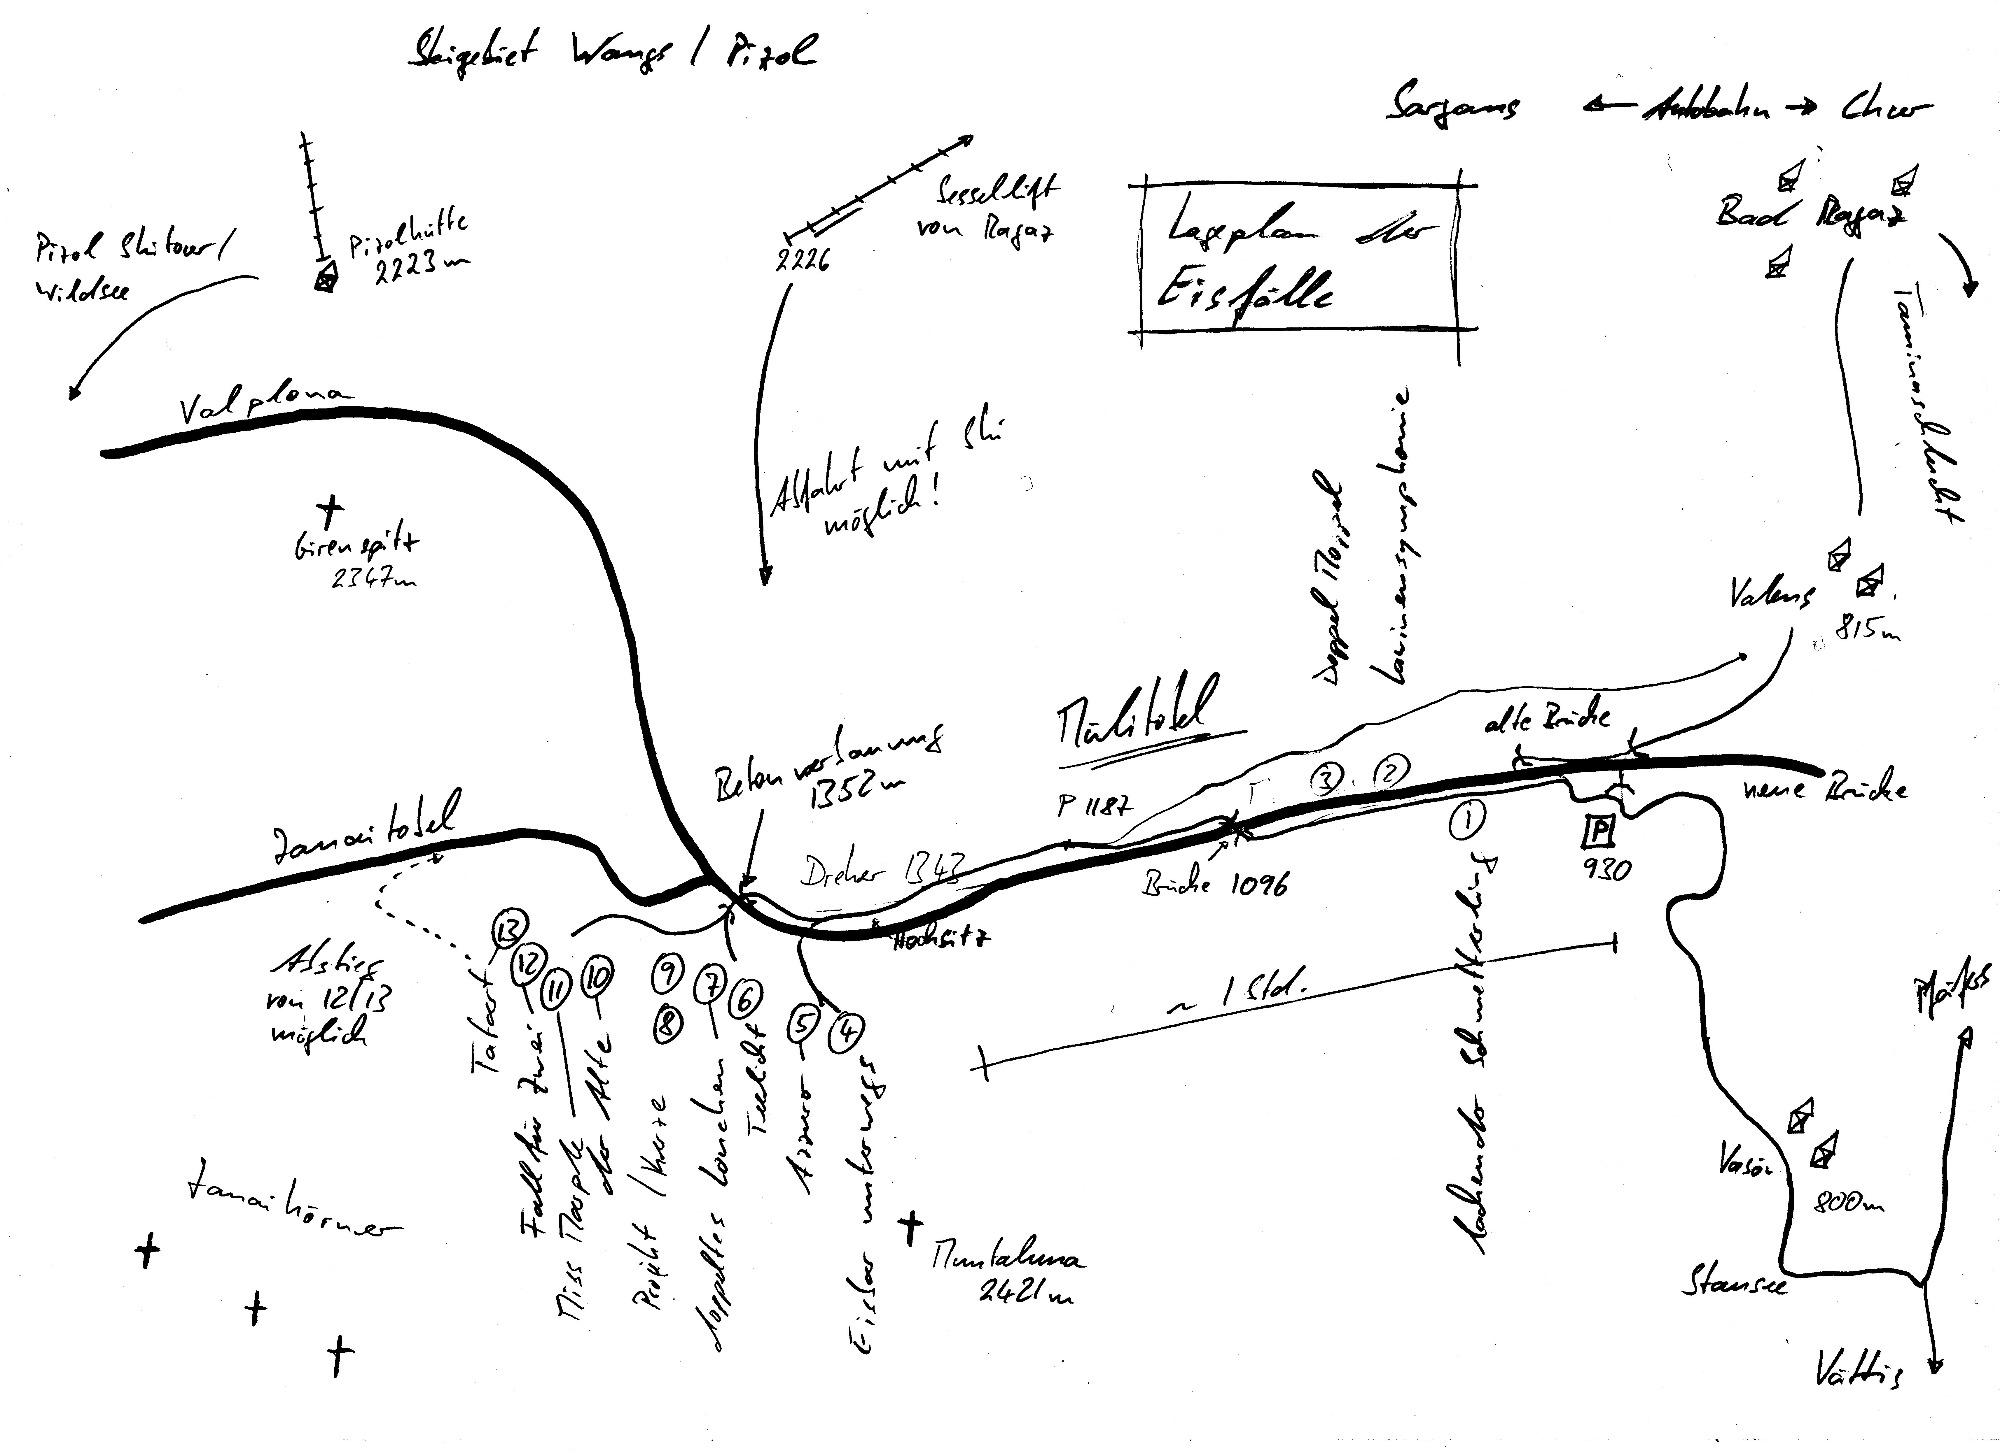 Skigebiet Wangs / Pizol
Sargans ← Autobahn → Chur
Bad Ragaz
Taminaschlucht
Sesselift
von Ragaz
2226
Pizolhütte
2223m
Pizol Skitour /
Wildsee
Lageplan der
Eisfälle
Valplona
Abfahrt mit Ski
möglich!
Girenspitz
2347m
Doppel Moppel
Lawinensymphonie
Valens
815m
Mühlitobel
alte Brücke
neue Brücke
Betonverbauung
1352m
P 1187
3
2
1
P
930
Zanaitobel
Dreher 1343
Brücke 1096
Hochsitz
~ 1 Std.
Abstieg
von 12/13
möglich
13
12
11
10
9
8
7
6
5
4
Tatort
Fall für Zwei
Miss Marple
der Alte
Projekt / Kerze
doppeltes Lottchen
Teelicht
Azzurro
Eisbär unterwegs
lachender Schmetterling
Pfäfers
Vasön
800m
Stausee
Vättis
Zanaihörner
Muntaluna
2421m